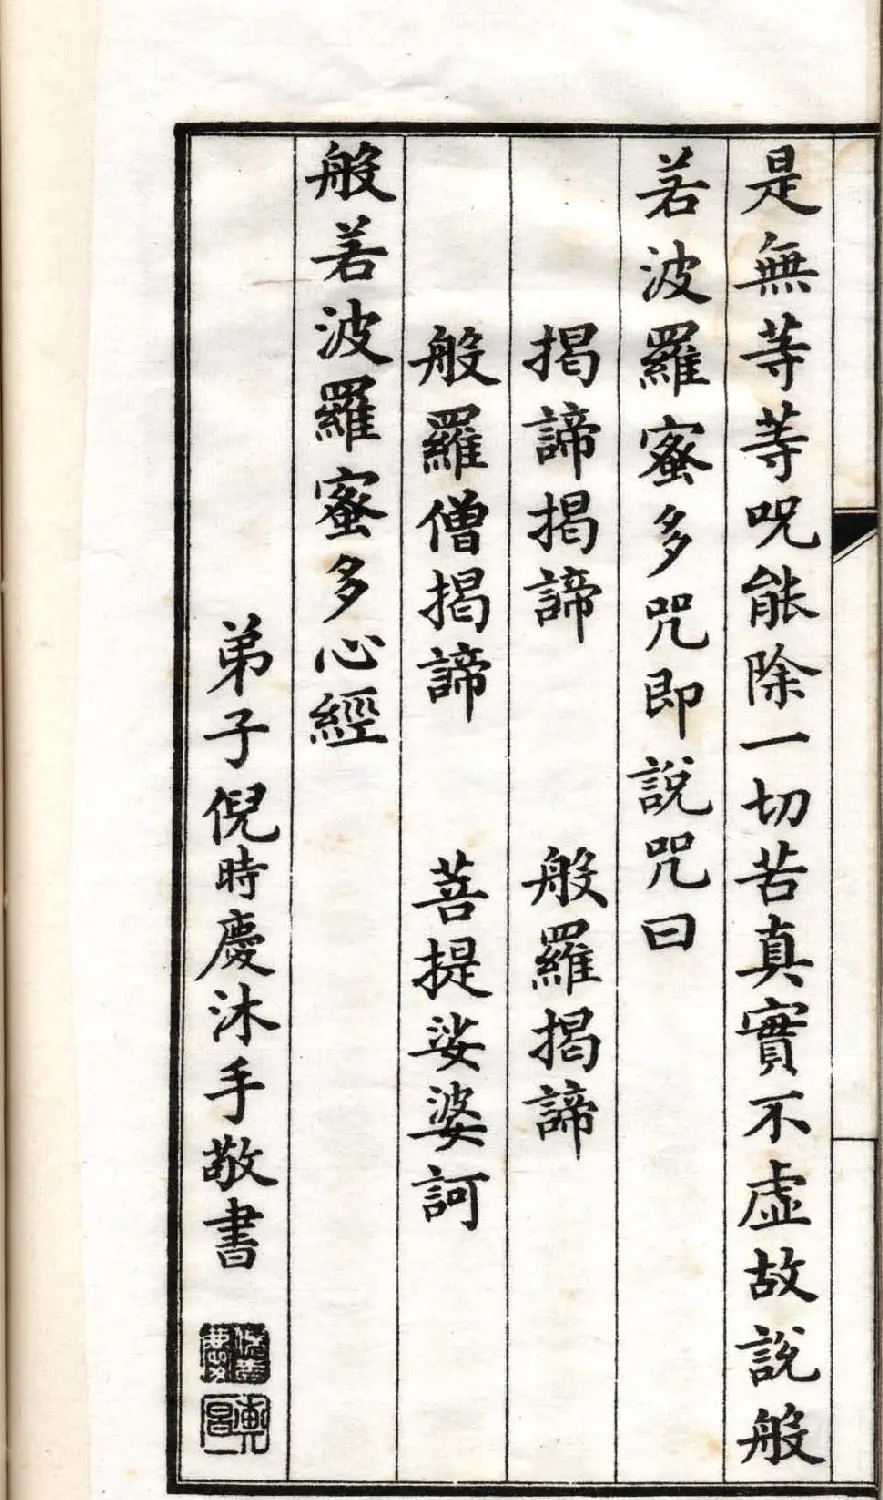 是無等等呪能除一切苦真實不虛故說般
若波羅蜜多咒即說咒曰
揭諦揭諦 般羅揭諦
般羅僧揭諦 菩提娑婆訶
般若波羅蜜多心經
弟子倪時慶沐手敬書